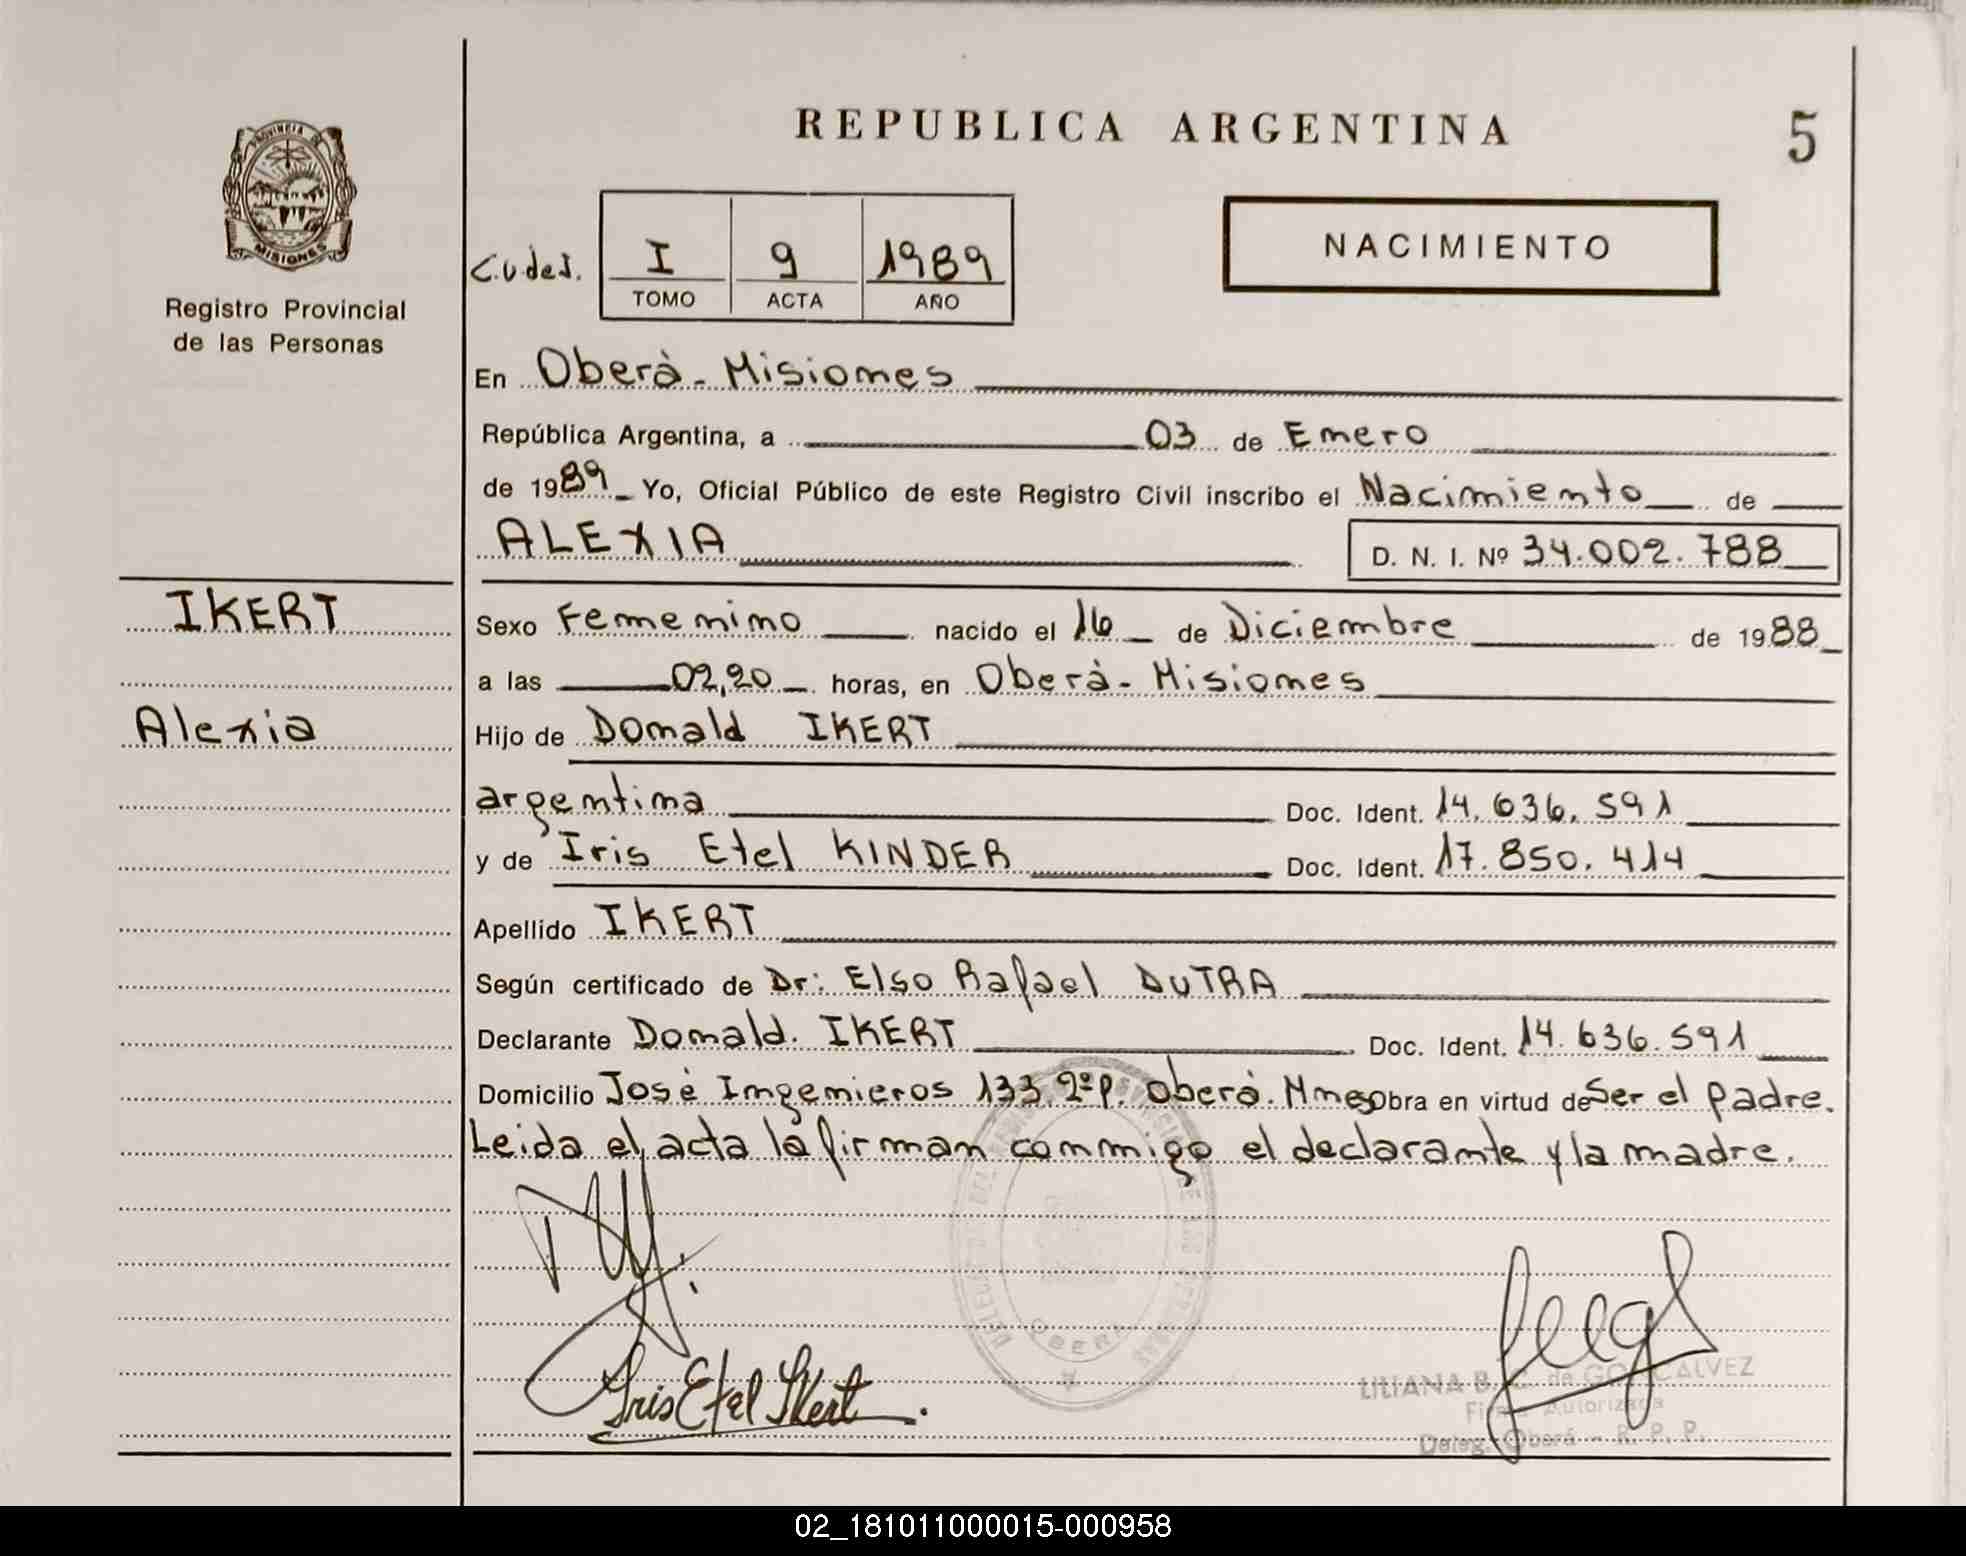 REPUBLICA ARGENTINA
5
PROVINCIA DE
MISIONES
Registro Provincial
de las Personas
C.udes.
I 9 1989
TOMO ACTA AÑO
NACIMIENTO
En Oberà - Misiones
República Argentina, a 03 de Enero
de 1989 Yo, Oficial Público de este Registro Civil inscribo el Nacimiento de
ALEXIA D. N. I. Nº 34.002.788
IKERT
Sexo Femenino nacido el 16 de Diciembre de 1988
a las 02,20 horas, en Oberà - Misiones
Alexia
Hijo de Donald IKERT
argentina Doc. Ident. 14.636.591
y de Iris Etel KINDER Doc. Ident. 17.850.414
Apellido IKERT
Según certificado de Dr: Elso Rafael DUTRA
Declarante Donald. IKERT Doc. Ident. 14.636.591
Domicilio José Ingenieros 133. 2º p. Oberà. Mnes Obra en virtud de Ser el padre.
Leida el acta la firman conmigo el declarante y la madre.
OBERA
Iris Etel Ikert.
LILIANA B. C. de GONCALVEZ
Firma Autorizada
Deleg. Oberá - R. P. P.
02_181011000015-000958